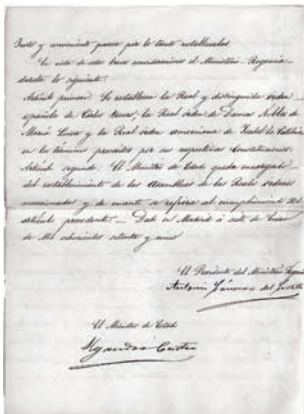 Justo y conveniente parece por lo tanto restablecerlas
En vista de estas breves consideraciones el Ministerio Regencia
decreta lo siguiente:
Artículo primero. Se restablecen la Real y distinguida orden
española de Carlos tercero, la Real orden de Damas Nobles de
María Luisa y la Real orden americana de Isabel la Católica
en los términos prevenidos por sus respectivas Constituciones.
Artículo segundo. El Ministro de Estado queda encargado
del restablecimiento de las Asambleas de las Reales ordenes
mencionadas y de cuanto se refiera al cumplimiento del
artículo precedente. — Dado en Madrid á siete de Enero
de Mil ochocientos setenta y cinco
El Presidente del Ministerio Regencia
Antonio Cánovas del Castillo
El Ministro de Estado
Castro